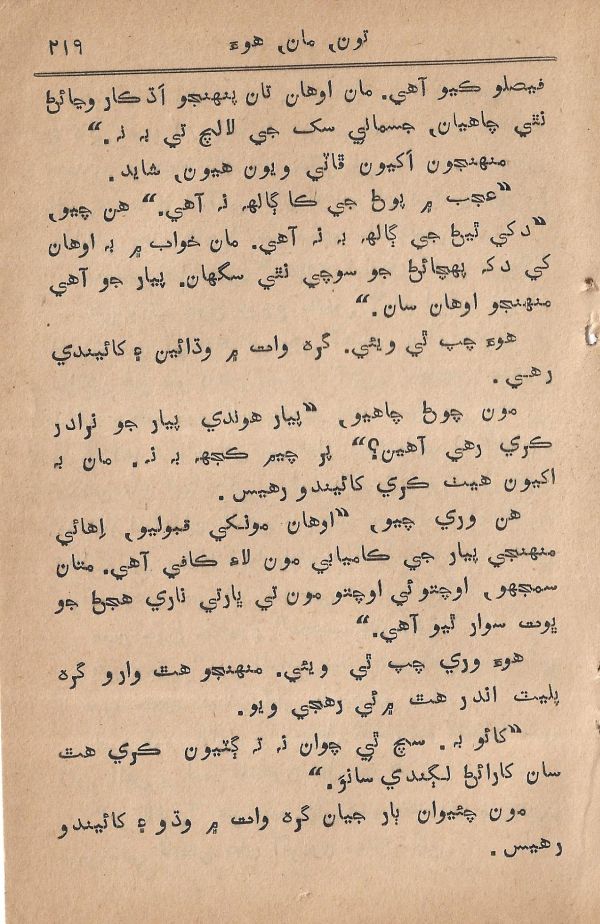 تون, مان, هوءَ ٢١٩
فيصلو ڪيو آهي. مان اوهان تان پنهنجو اَڌڪار وڃائڻ
نٿي چاهيان, جسماني سک جي لالچ تي بہ نہ.“
منهنجون اَکيون ڦاٽي ويون هيون, شايد.
”عجب ۾ پوڻ جي ڪا ڳالهہ نہ آهي.“ هن چيو,
”دکي ٿيڻ جي ڳالهہ بہ نہ آهي. مان خواب ۾ بہ اوهان
کي دک پهچائڻ جو سوچي نٿي سگهان. پيار جو آهي
منهنجو اوهان سان.“
هوءَ چپ ٿي ويئي. گره وات ۾ وڌائين ۽ کائيندي
رهي.
مون چوڻ چاهيو, ”پيار هوندي پيار جو نرادر
ڪري رهي آهين؟“ پر چيم ڪجهہ بہ نہ. مان بہ
اکيون هيٺ ڪري کائيندو رهيس.
هن وري چيو, ”اوهان مونکي قبوليو, اِهائي
منهنجي پيار جي ڪاميابي مون لاءِ ڪافي آهي. متان
سمجهو, اوچتو ئي اوچتو مون تي ڀارتي ناري هجڻ جو
ڀوت سوار ٿيو آهي.“
هوءَ وري چپ ٿي ويئي. منهنجو هٿ وارو گره
پليٽ اندر هٿ ۾ ئي رهجي ويو.
”کائو بہ. سچ ٿي چوان نہ تہ ڳٽيون ڪري هٿ
سان کارائڻ لڳندي سانوَ.“
مون چئيوان ٻار جيان گره وات ۾ وڌو ۽ کائيندو
رهيس.